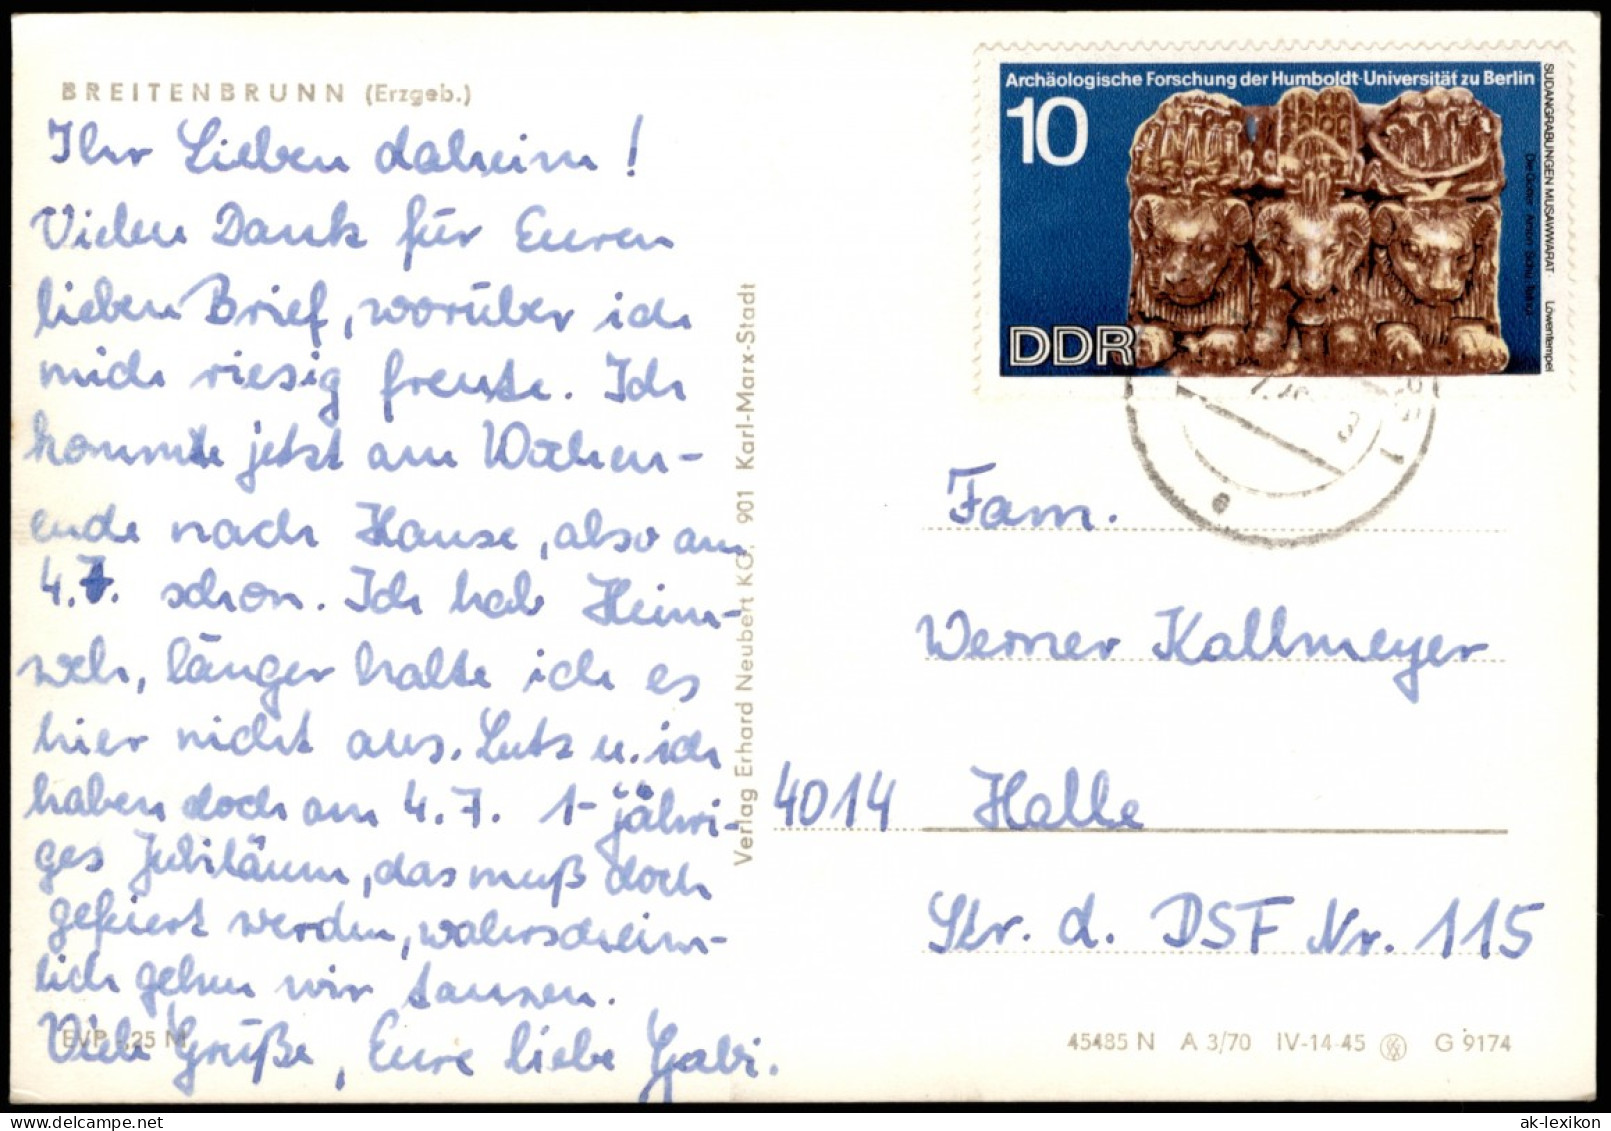 BREITENBRUNN (Erzgeb.)
Ihr Lieben daheim!
Vielen Dank für Euren
lieben Brief, worüber ich
mich riesig freute. Ich
komme jetzt am Wochen-
ende nach Hause, also am
4.7. schon. Ich hab Heim-
weh, länger halte ich es
hier nicht aus. Lutz u. ich
haben doch am 4.7. 1-jähri-
ges Jubiläum, das muß doch
gefeiert werden, wahrschein-
lich gehen wir tanzen.
Viele Grüße, Eure liebe Gabi.
EVP -,25 M
Verlag Erhard Neubert KG, 901 Karl-Marx-Stadt
Archäologische Forschung der Humboldt-Universität zu Berlin
10
DDR
SUDANGRABUNGEN MUSAWWARAT · Löwentempel
Die Götter
Fam.
Werner Kallmeyer
4014 Halle
Str. d. DSF Nr. 115
45485 N A 3/70 IV-14-45 G 9174
ak-lexikon.com